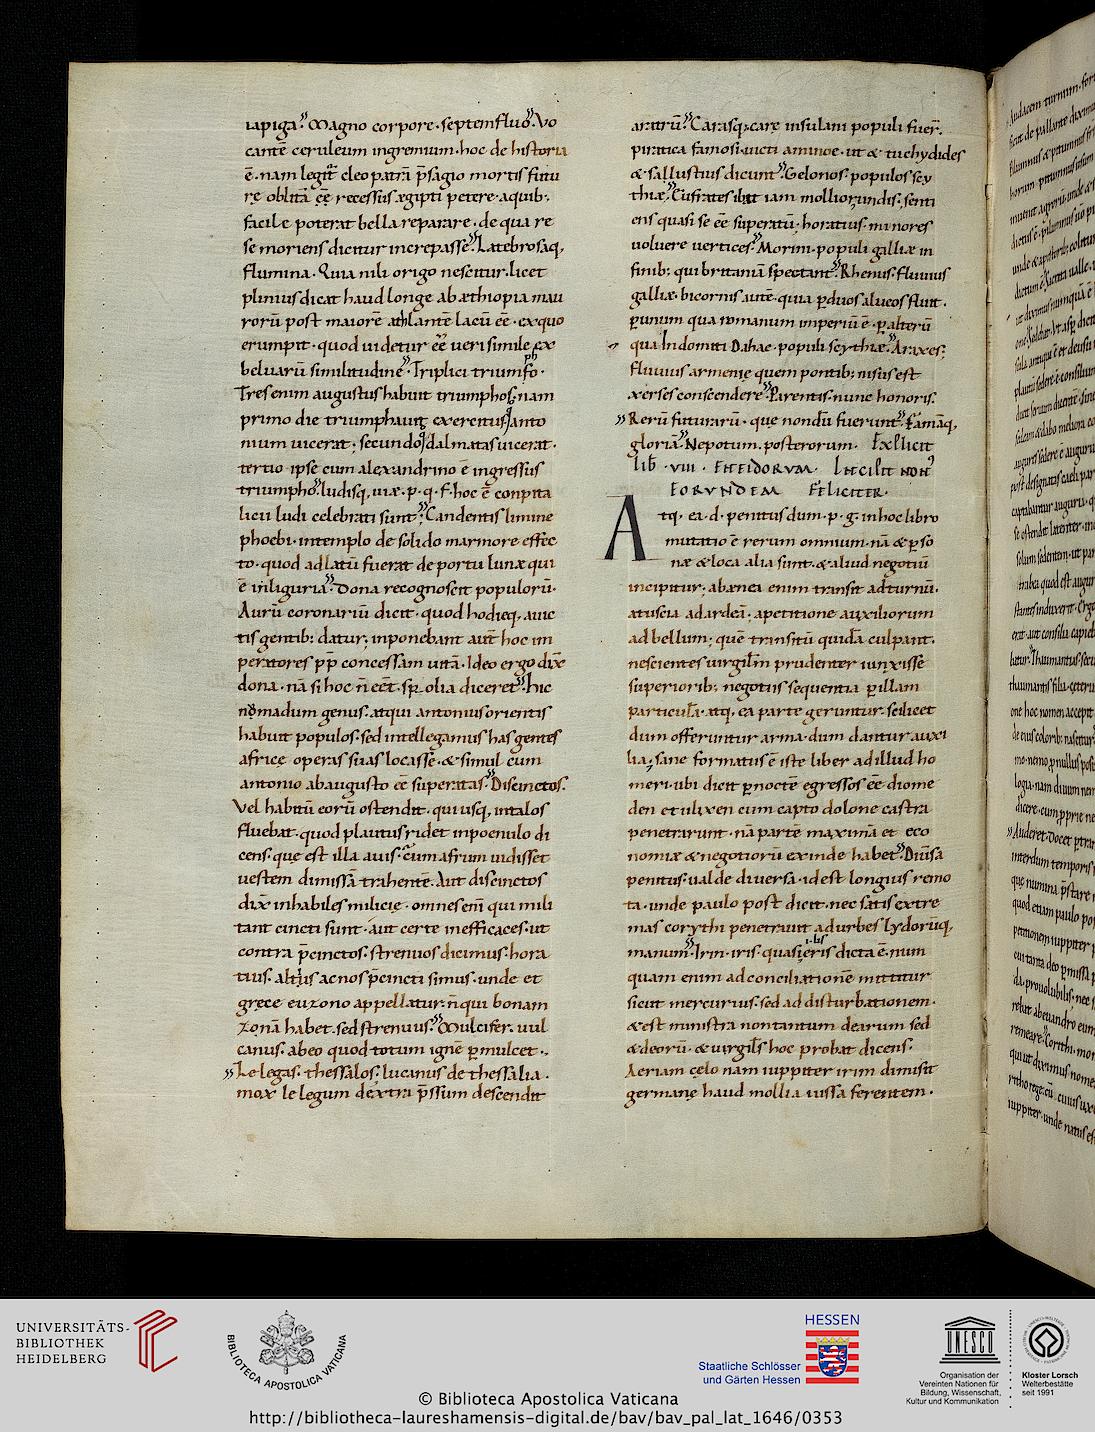 iapiga. Magno corpore. septemfluo. Vo
cantē ceruleum ingremium. hoc de historia
ē. nam legit̄ cleopatrā p̄sagio mortis futu
rę oblitā eē recessus ægipti petere. aquib;
facile poterat bella reparare. de qua re
se moriens dicitur increpasse. Latebrosaq;
flumina. Quia nili origo nescitur. licet
plinius dicat haud longe ab æthiopia mau
rorū post maiorē athlantē lacū eē. exquo
erumpit. quod uidetur eē uerisimile ex
beluarū similitudine. Triplici triumfo.
Tres enim augustus habuit triumphos. nam
primo die triumphauit exercitus q̄ anto
nium uicerat; secundo q̄ dalmatas uicerat.
tertio ipse cum alexandrino ē ingressus
triumpho. ludisq; uiæ. p. q. f. hoc ē conpita
licii ludi celebrati sunt. Candentis limine
phoebi. intemplo de solido marmore effec
to. quod adlatū fuerat de portu lunæ qui
ē inliguria. Dona recognoscit populorū.
Aurū coronariū dicit. quod hodieq; a uic
tis gentib; datur; inponebant autē hoc im
peratores pp̄ concessam uitā. Ideo ergo dix̄
dona. nā si hoc n̄ eēt. spolia diceret. hic
nomadum genus. atqui antonius orientis
habuit populos. sed intellegamus has gentes
africę operas suas locasse. & simul cum
antonio abaugusto eē superatas. Discinctos.
Vel habitū eorū ostendit. qui usq; intalos
fluebat. quod plautus ridet inpoenulo di
cens. que est illa auis. cum afrum uidisset
uestem dimissā trahentē. Aut discinctos
dix̄ inhabiles milicię. omnes enī qui mili
tant cincti sunt. aut certe inefficaces. ut
contra p̄cinctos. strenuos dicimus. hora
tius. altius ac nos p̄cincti simus. unde et
gręce euzono appellatur. n̄ qui bonam
zonā habet. sed strenuus. Mulcifer. uul
canus. abeo quod totum ignē p̄mulcet.
Lelegas. thessalos. lucanus de thessalia.
mox lelegum dextra p̄ssum descendit
aratrū. Carasq; care insulani populi fuer̄.
piratica famosi. uicti aminoe. ut & tuchydides
& sallustius dicunt. Gelonos. populos scy
thiæ. Eufrates ibat iam mollior undis. senti
ens quasi se eē superatū. horatius. minores
uoluere uertices. Morini. populi galliæ in
finib; qui britaniā spectant. Rhenus. fluuius
galliæ. bicornis autē. quia p̄duos alueos fluit.
p̄unum qua romanum imperiū ē. p̄alterū
qua Indomiti Dahæ. populi scythiæ. Araxes;
fluuius armenię quem pontib; nisus est
xerses conscendere. Parentis. nunc honoris.
Rerū futurarū. que nondū fuerunt. Famāq;
gloriā. Nepotum. posterorum. Explicit
lib̄. VIII. Eneidorum. Incipit non'
eorundem feliciter.
Atq; ea. d. penitus dum. p. g. in hoc libro
mutatio ē rerum omnium. nā & p̄so
næ & loca alia sunt. & aliud negotiū
incipitur; abænei enim transit adturnū.
atuscia adardeā. apetitione auxiliorum
adbellum; quē transitū quidā culpant.
nescientes uirgiliū prudenter iunxisse
superiorib; negotiis sequentia p̄illam
particulā. atq; ea parte geruntur. scilicet
dum offeruntur arma. dum dantur auxi
lia; sane formatus ē iste liber adillud ho
meri. ubi dicit p̄noctē egressos eē diome
den et ulixen cum capto dolone castra
penetrarunt. nā partē maximā et eco
nomiæ & negotiorū exinde habet. Diuisa
penitus. ualde diuersa. idest longius remo
ta. unde paulo post dicit. nec satis extre
mas corythi penetrauit adurbes lydorūq;
manum. Irin. iris. quasi eris dicta ē. num
quam enim adconciliationē mittitur
sicut mercurius. sed ad disturbationem.
& est ministra nontantum dearum sed
& deorū. & uirgilius hoc probat dicens.
Aeriam cęlo nam iuppiter irim dimisit
germanę haud mollia iussa ferentem.
UNIVERSITÄTS-
BIBLIOTHEK
HEIDELBERG
BIBLIOTECA APOSTOLICA VATICANA
HESSEN
Staatliche Schlösser
und Gärten Hessen
UNESCO
Organisation der
Vereinten Nationen für
Bildung, Wissenschaft,
Kultur und Kommunikation
Kloster Lorsch
Welterbestätte
seit 1991
© Biblioteca Apostolica Vaticana
http://bibliotheca-laureshamensis-digital.de/bav/bav_pal_lat_1646/0353